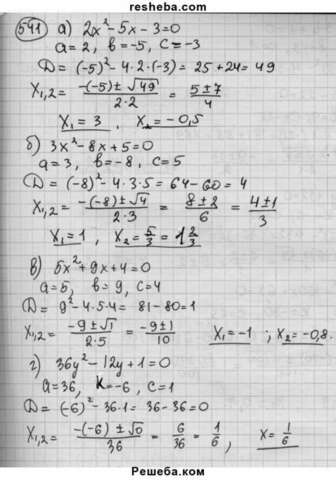 resheba.com
541 а) 2x² - 5x - 3 = 0
a = 2, b = -5, c = -3
D = (-5)² - 4·2·(-3) = 25 + 24 = 49
X₁,₂ = (-(-5) ± √49)/(2·2) = (5 ± 7)/4
X₁ = 3, X₂ = -0,5
б) 3x² - 8x + 5 = 0
a = 3, b = -8, c = 5
D = (-8)² - 4·3·5 = 64 - 60 = 4
X₁,₂ = (-(-8) ± √4)/(2·3) = (8 ± 2)/6 = (4 ± 1)/3
X₁ = 1, X₂ = 5/3 = 1 2/3
в) 5x² + 9x + 4 = 0
a = 5, b = 9, c = 4
D = 9² - 4·5·4 = 81 - 80 = 1
X₁,₂ = (-9 ± √1)/(2·5) = (-9 ± 1)/10 X₁ = -1 ; X₂ = -0,8.
г) 36y² - 12y + 1 = 0
a = 36, k = -6, c = 1
D = (-6)² - 36·1 = 36 - 36 = 0
X₁,₂ = (-(-6) ± √0)/36 = 6/36 = 1/6, x = 1/6
Решеба.ком